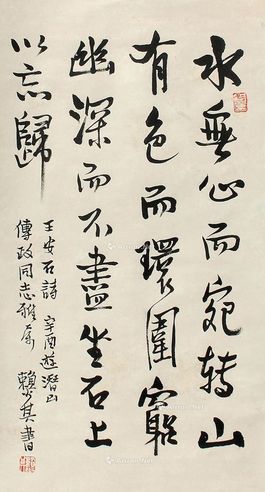 水無心而宛轉山
有色而環圍窮
幽深而不盡坐石上
以忘歸
王安石詩 辛酉遊潛山
傳政同志雅屬
賴少其書